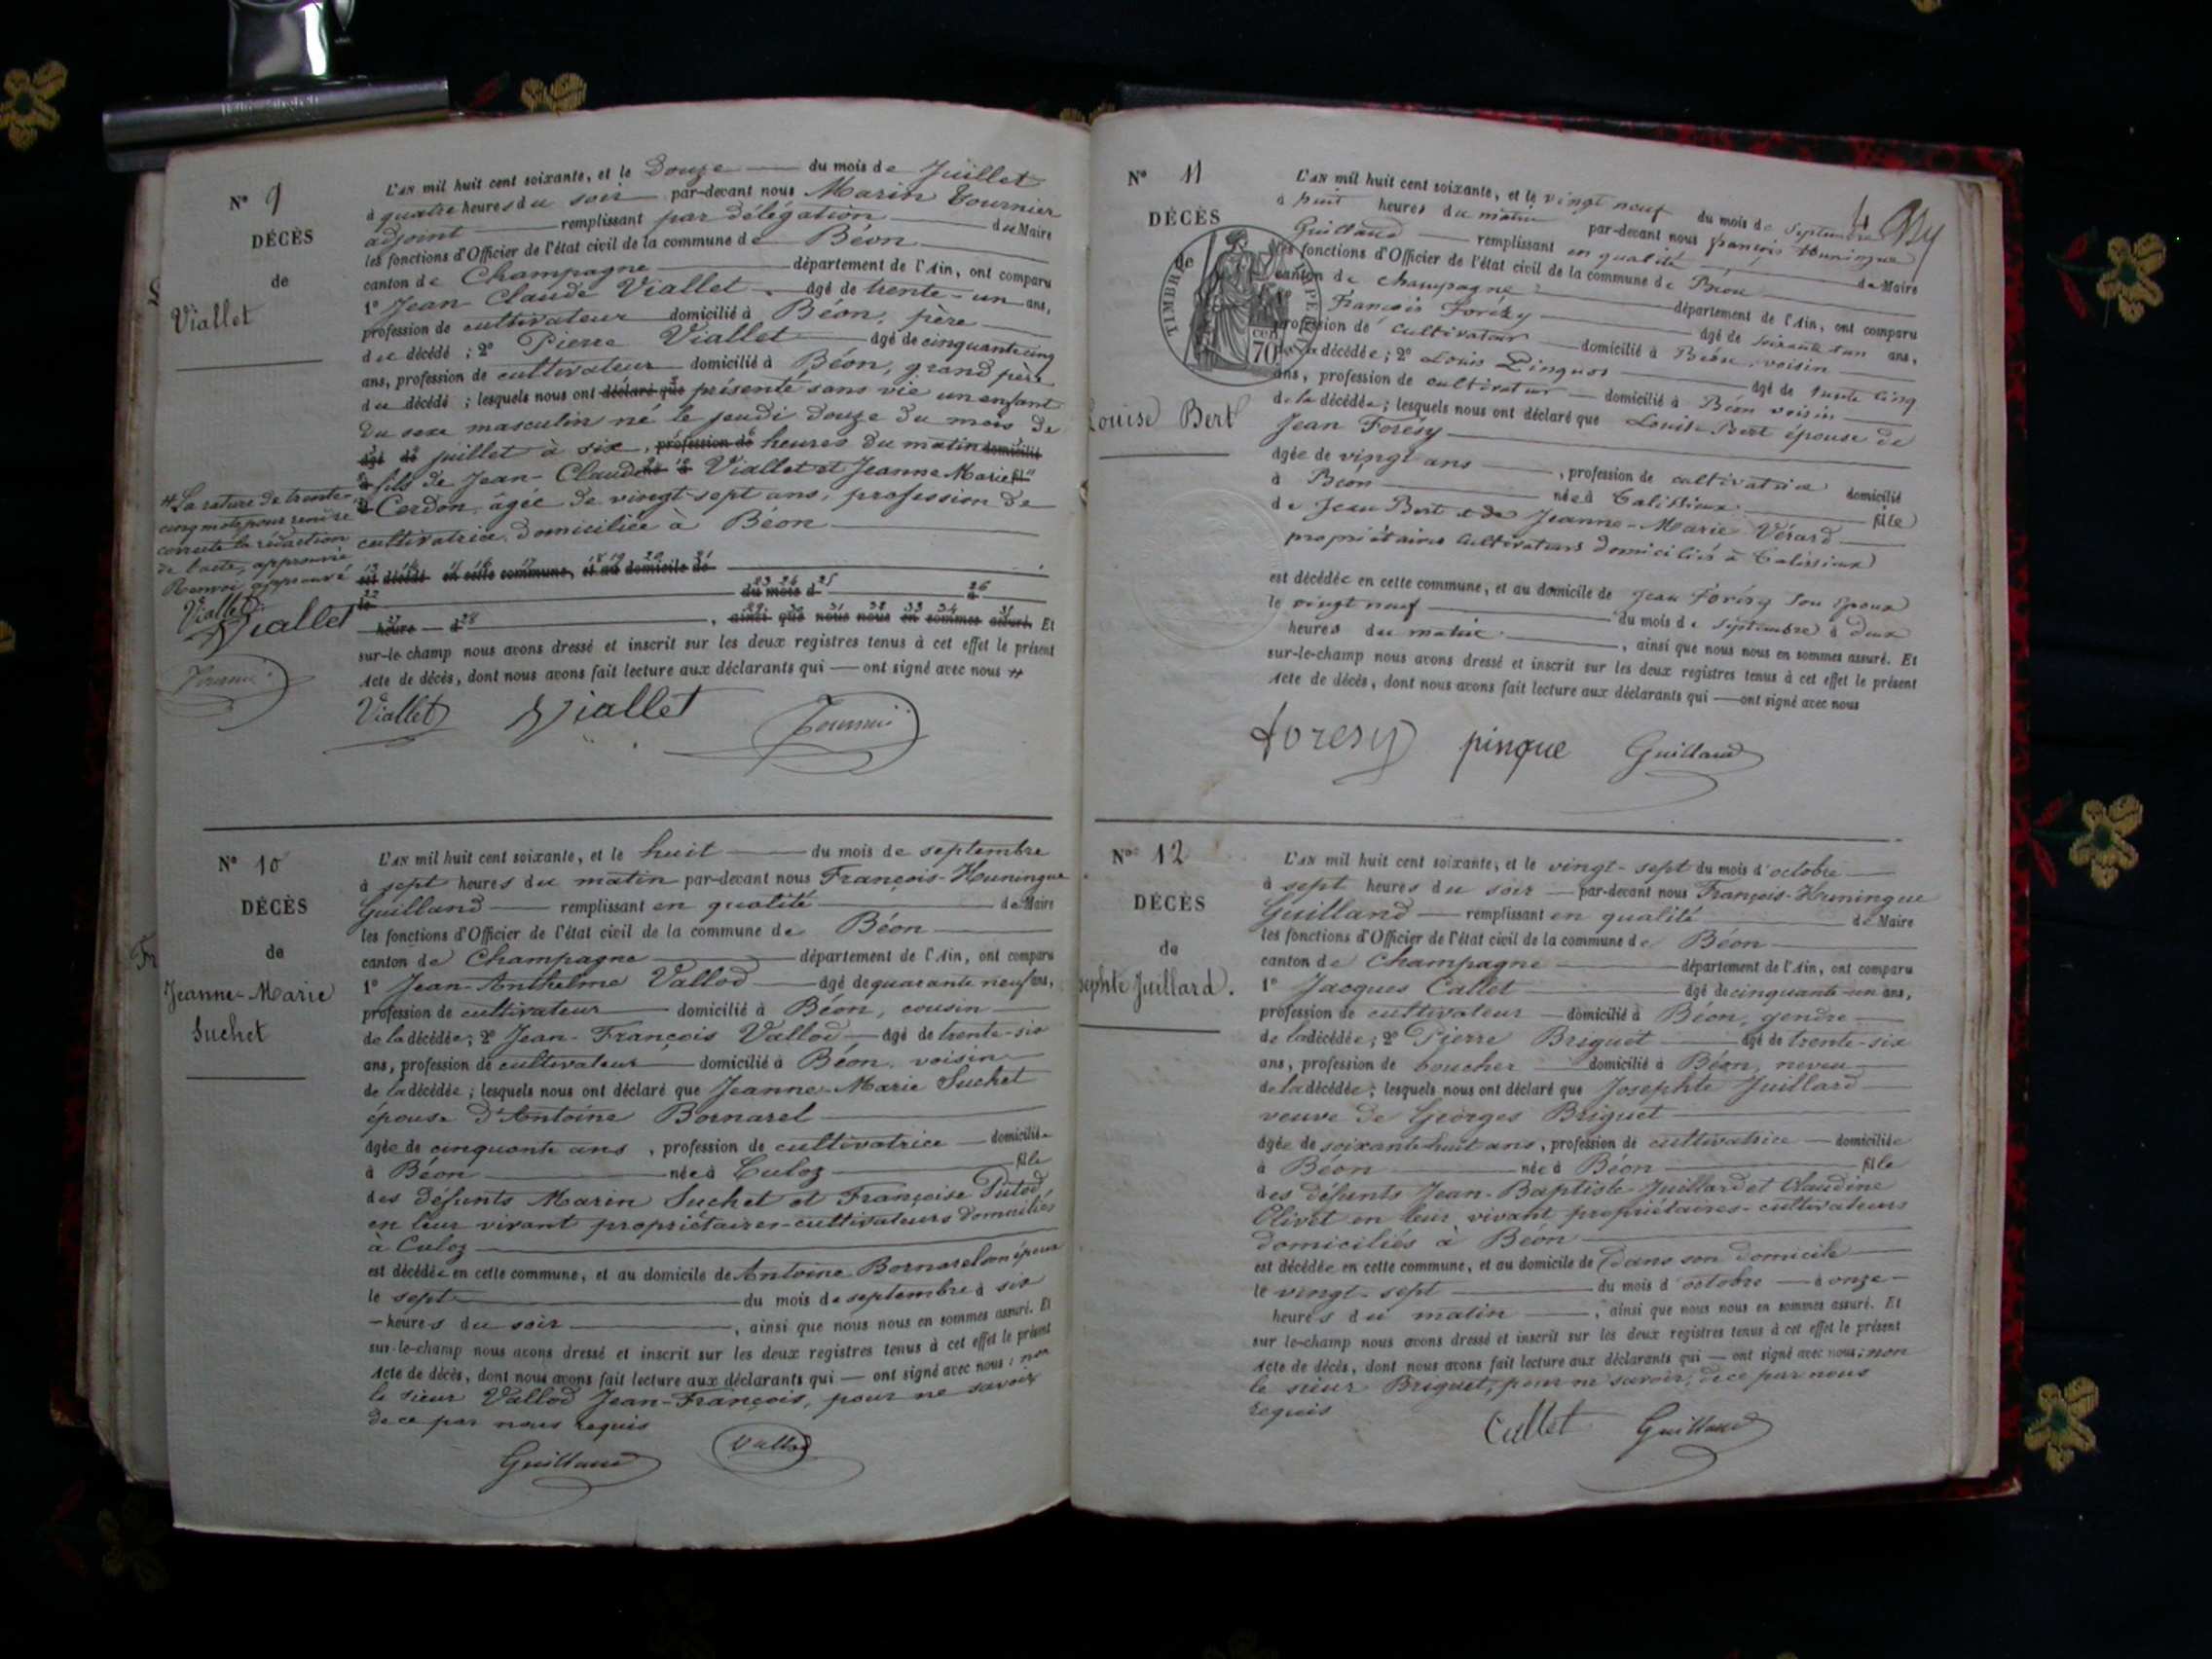 N° 9
DÉCÈS
de
Viallet
L'AN mil huit cent soixante, et le Douze du mois de Juillet
à quatre heures du soir par-devant nous Marin Tournier
adjoint remplissant par délégation du Maire
les fonctions d'Officier de l'état civil de la commune de Béon
canton de Champagne département de l'Ain, ont comparu
1° Jean-Claude Viallet âgé de trente-un ans,
profession de cultivateur domicilié à Béon, père
du décédé ; 2° Pierre Viallet âgé de cinquante cinq
ans, profession de cultivateur domicilié à Béon, grand père
du décédé ; lesquels nous ont déclaré que présenté sans vie un enfant
du sexe masculin né le jeudi douze du mois de
âgé de juillet à six, profession de heures du matin domicilié
à fils de Jean-Claude né à Viallet et Jeanne Marie fil
d Cerdon, âgée de vingt-sept ans, profession de
cultivatrice, domiciliée à Béon
est décédé en cette commune, et au domicile de
le du mois d à
heure d , ainsi que nous nous en sommes assuré. Et
sur-le-champ nous avons dressé et inscrit sur les deux registres tenus à cet effet le présent
Acte de décès, dont nous avons fait lecture aux déclarants qui ont signé avec nous #
# La rature de trente-
cinq mots pour rendre
correcte la rédaction
de l'acte, approuvée
Renvoi approuvé
Viallet
Viallet
Tournier
Viallet Viallet Tournier
N° 10
DÉCÈS
de
Jeanne-Marie
Suchet
L'AN mil huit cent soixante, et le huit du mois de septembre
à sept heures du matin par-devant nous François-Huningue
Guilland remplissant en qualité de Maire
les fonctions d'Officier de l'état civil de la commune de Béon
canton de Champagne département de l'Ain, ont comparu
1° Jean-Anthelme Vallod âgé de quarante neuf ans,
profession de cultivateur domicilié à Béon, cousin
de la décédée ; 2° Jean-François Vallod âgé de trente-six
ans, profession de cultivateur domicilié à Béon, voisin
de la décédée ; lesquels nous ont déclaré que Jeanne-Marie Suchet
épouse d'Antoine Bornarel
âgée de cinquante ans, profession de cultivatrice domiciliée
à Béon née à Culoz fille
des défunts Marin Suchet et Françoise Putod,
en leur vivant propriétaires-cultivateurs domiciliés
à Culoz
est décédée en cette commune, et au domicile de Antoine Bornarel son époux
le sept du mois de septembre à six
heures du soir , ainsi que nous nous en sommes assuré. Et
sur-le-champ nous avons dressé et inscrit sur les deux registres tenus à cet effet le présent
Acte de décès, dont nous avons fait lecture aux déclarants qui ont signé avec nous ; non
le sieur Vallod Jean-François, pour ne savoir
de ce par nous requis
Guilland Vallod
N° 11
DÉCÈS
de
TIMBRE IMPÉRIAL
70 cen
Louise Bert
4
L'AN mil huit cent soixante, et le vingt neuf du mois de Septembre
à huit heures du matin par-devant nous françois Huningue
Guilland remplissant en qualité de Maire
les fonctions d'Officier de l'état civil de la commune de Béon
canton de champagne département de l'Ain, ont comparu
1° François Forésy âgé de soixante un ans,
profession de cultivateur domicilié à Béon, voisin
de la décédée ; 2° Louis Pinguet âgé de trente cinq
ans, profession de cultivateur domicilié à Béon voisin
de la décédée ; lesquels nous ont déclaré que Louise Bert épouse de
Jean Forésy
âgée de vingt ans , profession de cultivatrice domicilié
à Béon née à Talissieux fille
de Jean Bert et de Jeanne-Marie Vérard
propriétaires cultivateurs domiciliés à Talissieux
est décédée en cette commune, et au domicile de Jean Forésy son époux
le vingt neuf du mois de Septembre à deux
heures du matin , ainsi que nous nous en sommes assuré. Et
sur-le-champ nous avons dressé et inscrit sur les deux registres tenus à cet effet le présent
Acte de décès, dont nous avons fait lecture aux déclarants qui ont signé avec nous
foresy pinque Guilland
N° 12
DÉCÈS
de
sephte Juillard.
L'AN mil huit cent soixante, et le vingt-sept du mois d'octobre
à sept heures du soir par-devant nous François-Huningue
Guilland remplissant en qualité de Maire
les fonctions d'Officier de l'état civil de la commune de Béon
canton de Champagne département de l'Ain, ont comparu
1° Jacques Callet âgé de cinquante-un ans,
profession de cultivateur domicilié à Béon, gendre
de la décédée ; 2° Pierre Briguet âgé de trente-six
ans, profession de boucher domicilié à Béon, neveu
de la décédée ; lesquels nous ont déclaré que Josephte Juillard
veuve de Georges Briguet
âgée de soixante-huit ans, profession de cultivatrice domiciliée
à Béon née à Béon fille
des défunts Jean-Baptiste Juillard et Claudine
Olivet en leur vivant propriétaires-cultivateurs
domiciliés à Béon
est décédée en cette commune, et au domicile de dans son domicile
le vingt-sept du mois d'octobre à onze
heures du matin , ainsi que nous nous en sommes assuré. Et
sur-le-champ nous avons dressé et inscrit sur les deux registres tenus à cet effet le présent
Acte de décès, dont nous avons fait lecture aux déclarants qui ont signé avec nous ; non
le sieur Briguet, pour ne savoir, de ce par nous
requis
Callet Guilland